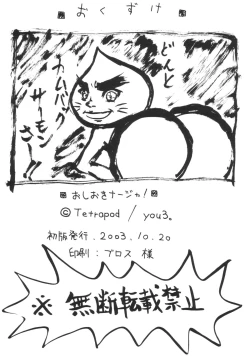 おくずけ
どんと
カムバック
サーモン
さー!
おしおきナージャ!
©Tetrapod / you3。
初版発行.2003.10.20
印刷:ブロス 様
※ 無断転載禁止